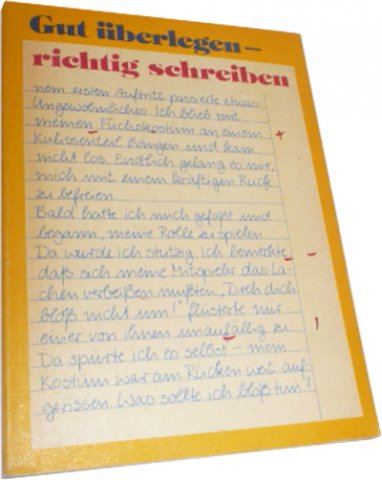 Gut überlegen –
richtig schreiben
nem ersten Auftritt passierte etwas
Ungewöhnliches. Ich blieb mit
meinem Fuchskostüm an einem
Kulissenteil hängen und kam
nicht los. Endlich gelang es mir,
mich mit einem kräftigen Ruck
zu befreien
Bald hatte ich mich gefaßt und
begann, meine Rolle zu spielen
Da wurde ich stutzig Ich bemerkte
daß sich meine Mitspieler das La-
chen verbeißen mußten. „Dreh dich
bloß nicht um!" flüsterte mir
einer von ihnen unaufällig zu
Da spürte ich es selbst – mein
Kostüm war am Rücken weit auf-
gerissen Was sollte ich bloß tun?